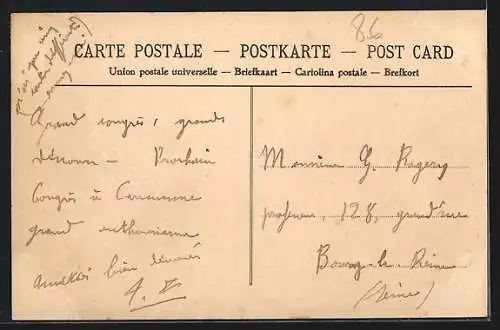 86
CARTE POSTALE — POSTKARTE — POST CARD
Union postale universelle — Briefkaart — Cartolina postale — Brefkort
Grand congrès, grands
Prochain
Congrès à Carcassonne
grand enthousiasme
bien dévoués
Monsieur G. Rogery
professeur, 128, grand'rue
Bourg-la-Reine
(Seine)